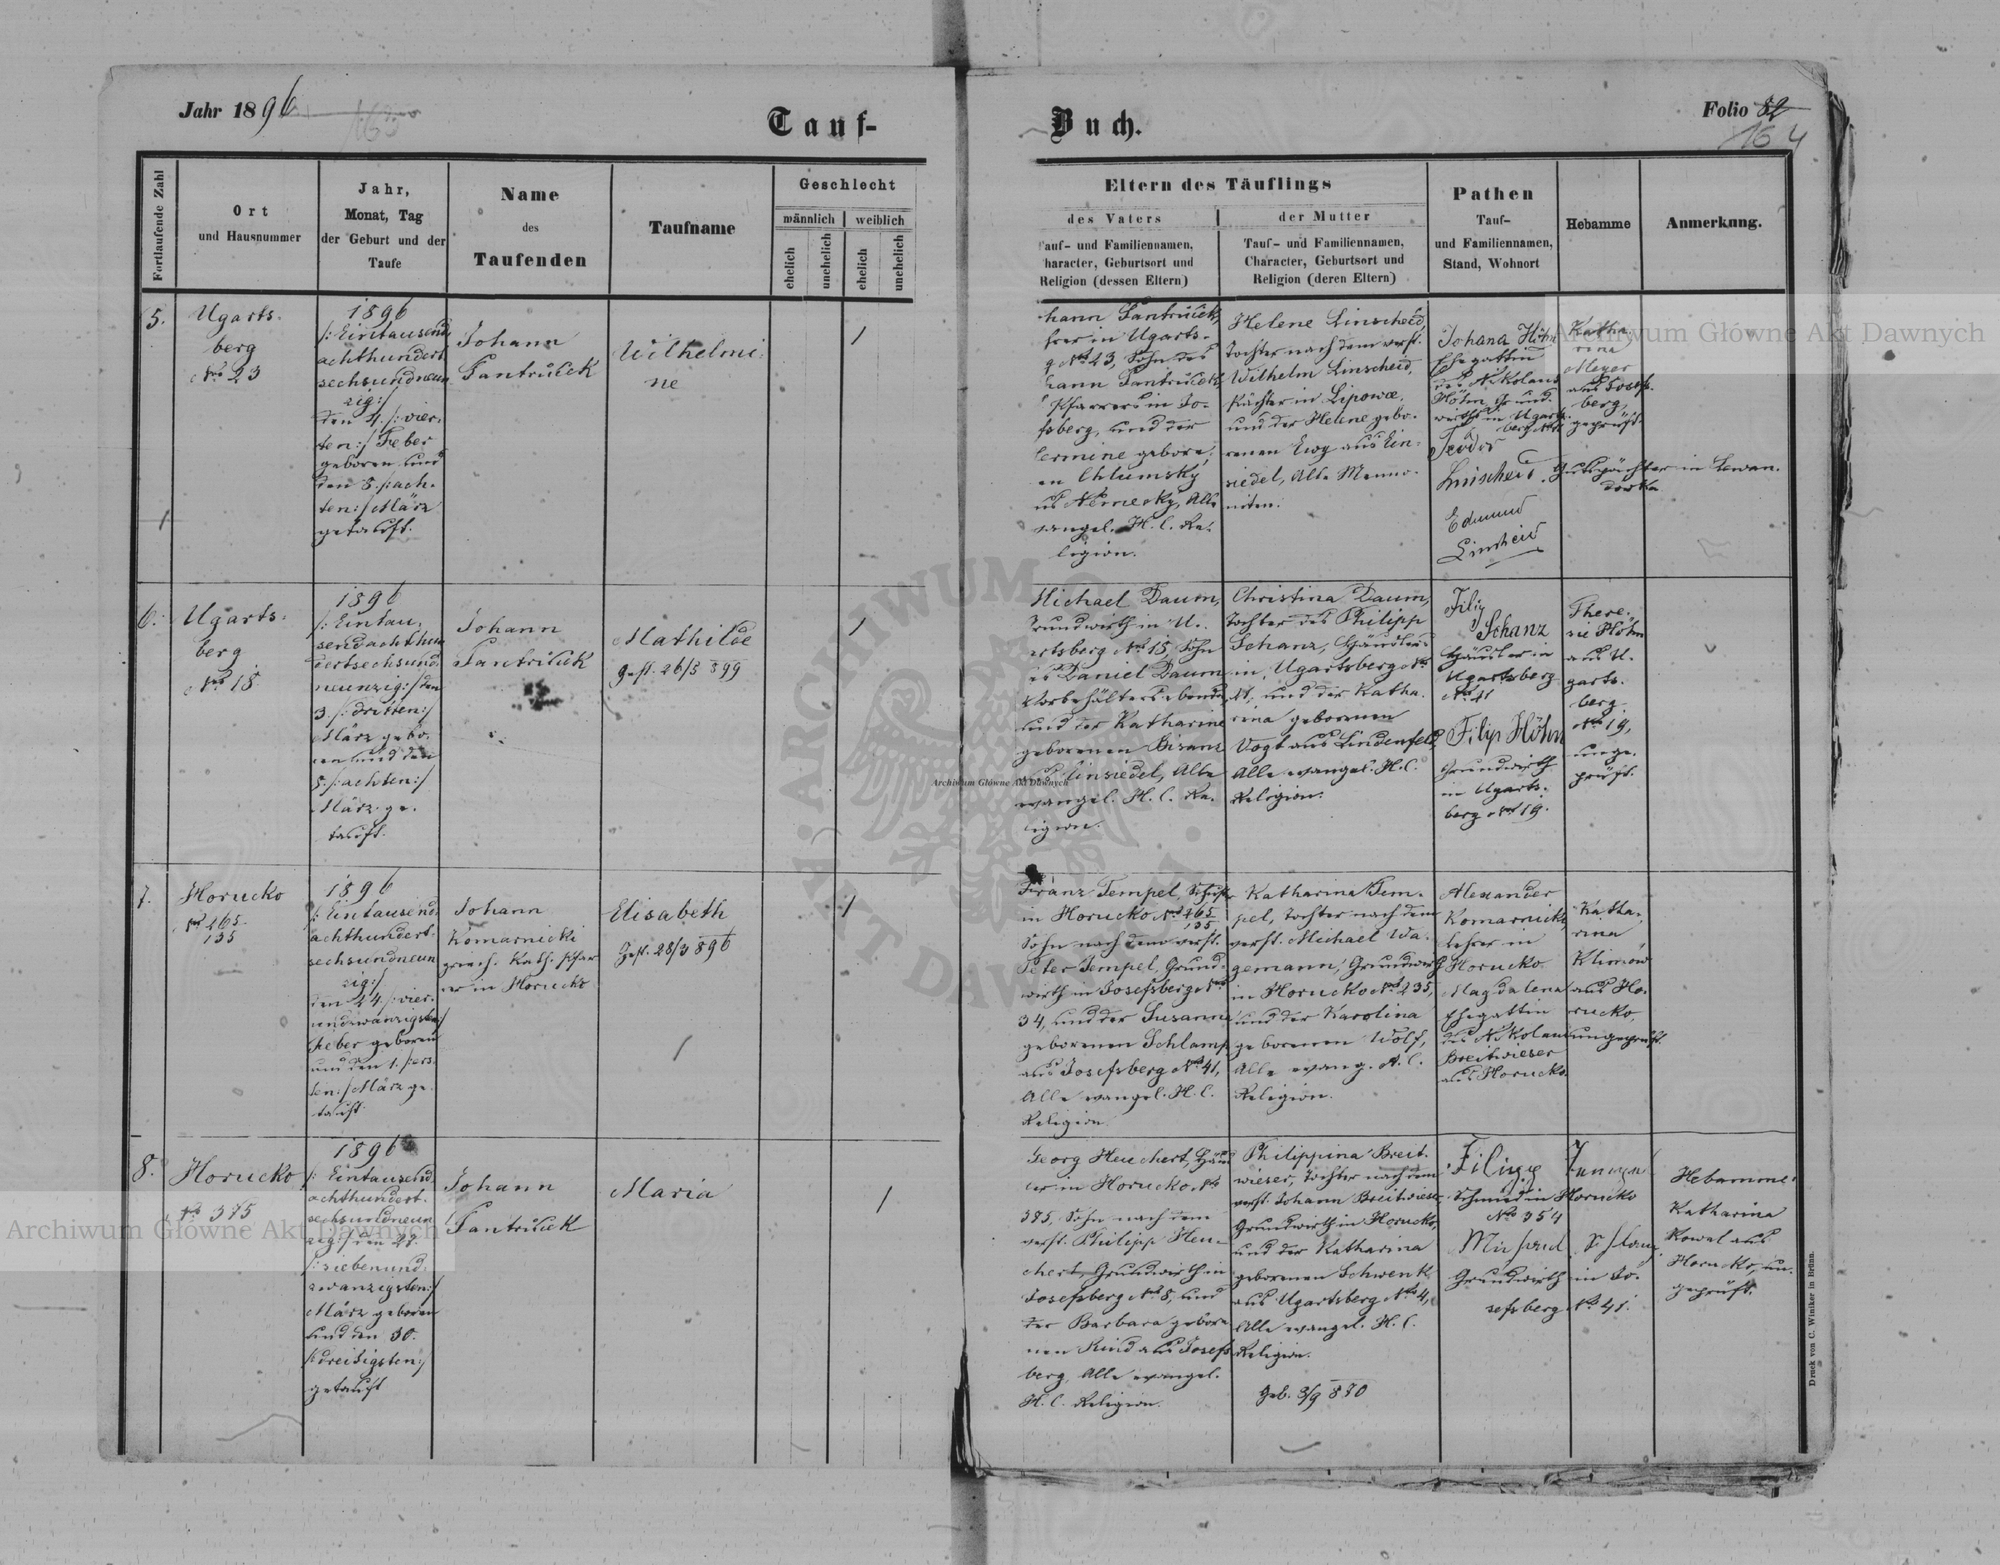 Jahr 1896
163
Tauf-
Buch.
Folio 82
164
Fortlaufende Zahl
Ort
und Hausnummer
Jahr,
Monat, Tag
der Geburt und der
Taufe
Name
des
Taufenden
Taufname
Geschlecht
männlich
weiblich
ehelich
unehelich
ehelich
unehelich
Eltern des Täuflings
des Vaters
auf- und Familiennamen,
haracter, Geburtsort und
Religion (dessen Eltern)
der Mutter
Tauf- und Familiennamen,
Character, Geburtsort und
Religion (deren Eltern)
Pathen
Tauf-
und Familiennamen,
Stand, Wohnort
Hebamme
Anmerkung.
5.
Ugarts-
berg
No 23
1896
/: Eintausend
achthundert
sechsundneun
zig :/
den 4. /: vier-
ten :/ Feber
geboren und
den 8. /: ach-
ten :/ März
getauft.
Johann
Fantrücek
Wilhelmi-
ne
1
hann Fantrücek,
hrer in Ugarts-
g No 23, Sohn des
hann Fantrücek
Pfarrers in Jo-
fsberg, und der
ermine gebore-
en Chlumsky
us Německy, Alle
vangel. H. C. Re-
ligion.
Helene Linscheid,
Tochter nach dem verst.
Wilhelm Linscheid,
Pächter in Lipowce,
und der Helene gebo-
renen Ewy aus Ein-
siedel, Alle Menno-
niten.
Johana Höhn
Ehegattin
des Nikolaus
Höhn Grund-
wirth in Ugarts-
berg
Teodor
Linscheid. Gutspächter in Lewan-
dówka
Edmund
Linscheid
Katha
rina
Meyer
aus Josefs-
berg,
geprüft.
6.
Ugarts-
berg
No 15
1896
/: Eintau-
sendachthun
dertsechsund-
neunzig :/ den
3 /: dritten :/
März gebo-
ren und den
8. /: achten :/
März ge-
tauft.
Johann
Fantrücek
Mathilde
Gest. 26/5 899
1
Michael Daum,
rundwirth in U-
artsberg No 15, Sohn
s Daniel Daum
Vorbehälters ebenda,
und der Katharine
geborenen Bisanz
aus Einsiedel, Alle
evangel. H. C. Re-
igion.
Christina Daum,
Tochter des Philipp
Schanz, Häusler
in Ugartsberg No
41, und der Katha-
rina geborenen
Vogt aus Lindenfeld,
Alle evangel. H. C.
Religion.
Filip
Schanz
Häusler in
Ugartsberg
No 41
Filip Höhn
Grundwirth
in Ugarts-
berg No 19.
There-
sie Höhn
aus U-
garts-
berg
No 19,
unge-
prüft.
7.
Horucko
No 265
135
1896
/: Eintausend
achthundert-
sechsundneun
zig :/
den 24 /: vier-
undzwanzigsten :/
Feber geboren
und den 1. /: ers-
ten :/ März ge-
tauft.
Johann
Komarnicki
griech. Kath. Pfar
rer in Horucko
Elisabeth
Gest. 28/3 896
1
Franz Tempel,
in Horucko No 265
135
Sohn nach dem verst.
Peter Tempel, Grund-
wirth in Josefsberg No
34, und der Susanna
geborenen Schlamp
aus Josefsberg No 41,
Alle evangel. H. C.
Religion
Katharina Tem-
pel, Tochter nach dem
verst. Michael Wa-
gemann, Grundwirth
in Horucko No 235,
und der Karolina
geborenen Wolf,
Alle evang. A. C.
Religion.
Alexander
Komarnicki,
Lehrer in
Horucko
Magdalena
Ehegattin
des Nikolaus
Breitwieser
aus Horucko.
Katha-
rina
Klimow
aus Ho-
rucko,
ungeprüft.
8.
Horucko
No 375
1896
/: Eintausend
achthundert-
sechsundneun
zig :/ den 27.
/: siebenund-
zwanzigsten :/
März geboren
und den 30.
/: dreisigsten :/
getauft
Johann
Fantrücek
Maria
1
Georg Heuchert, Häus
ler in Horucko No
375, Sohn nach dem
verst. Philipp Heu-
chert, Grundwirth in
Josefsberg No 8, und
der Barbara gebore
nen Kind aus Josefs
berg, Alle evangel.
H. C. Religion.
Philippina Breit-
wieser, Tochter nach dem
verst. Johann Breitwieser
Grundwirth in Horucko,
und der Katharina
geborenen Schwenk
aus Ugartsberg No 4,
Alle evangel. H. C.
Religion.
Geb. 3/9 870
Filipp
Schmied in Horucko
No 354
Grundwirth in Jo-
sefsberg No 41.
Hebamme:
Katharina
Kowal aus
Horucko, un-
geprüft.
Druck von C. Winiker in Brünn.
Archiwum Główne Akt Dawnych
Archiwum Główne Akt Dawnych
Archiwum Główne Akt Dawnych
ARCHIWUM
AKT DAWNYCH